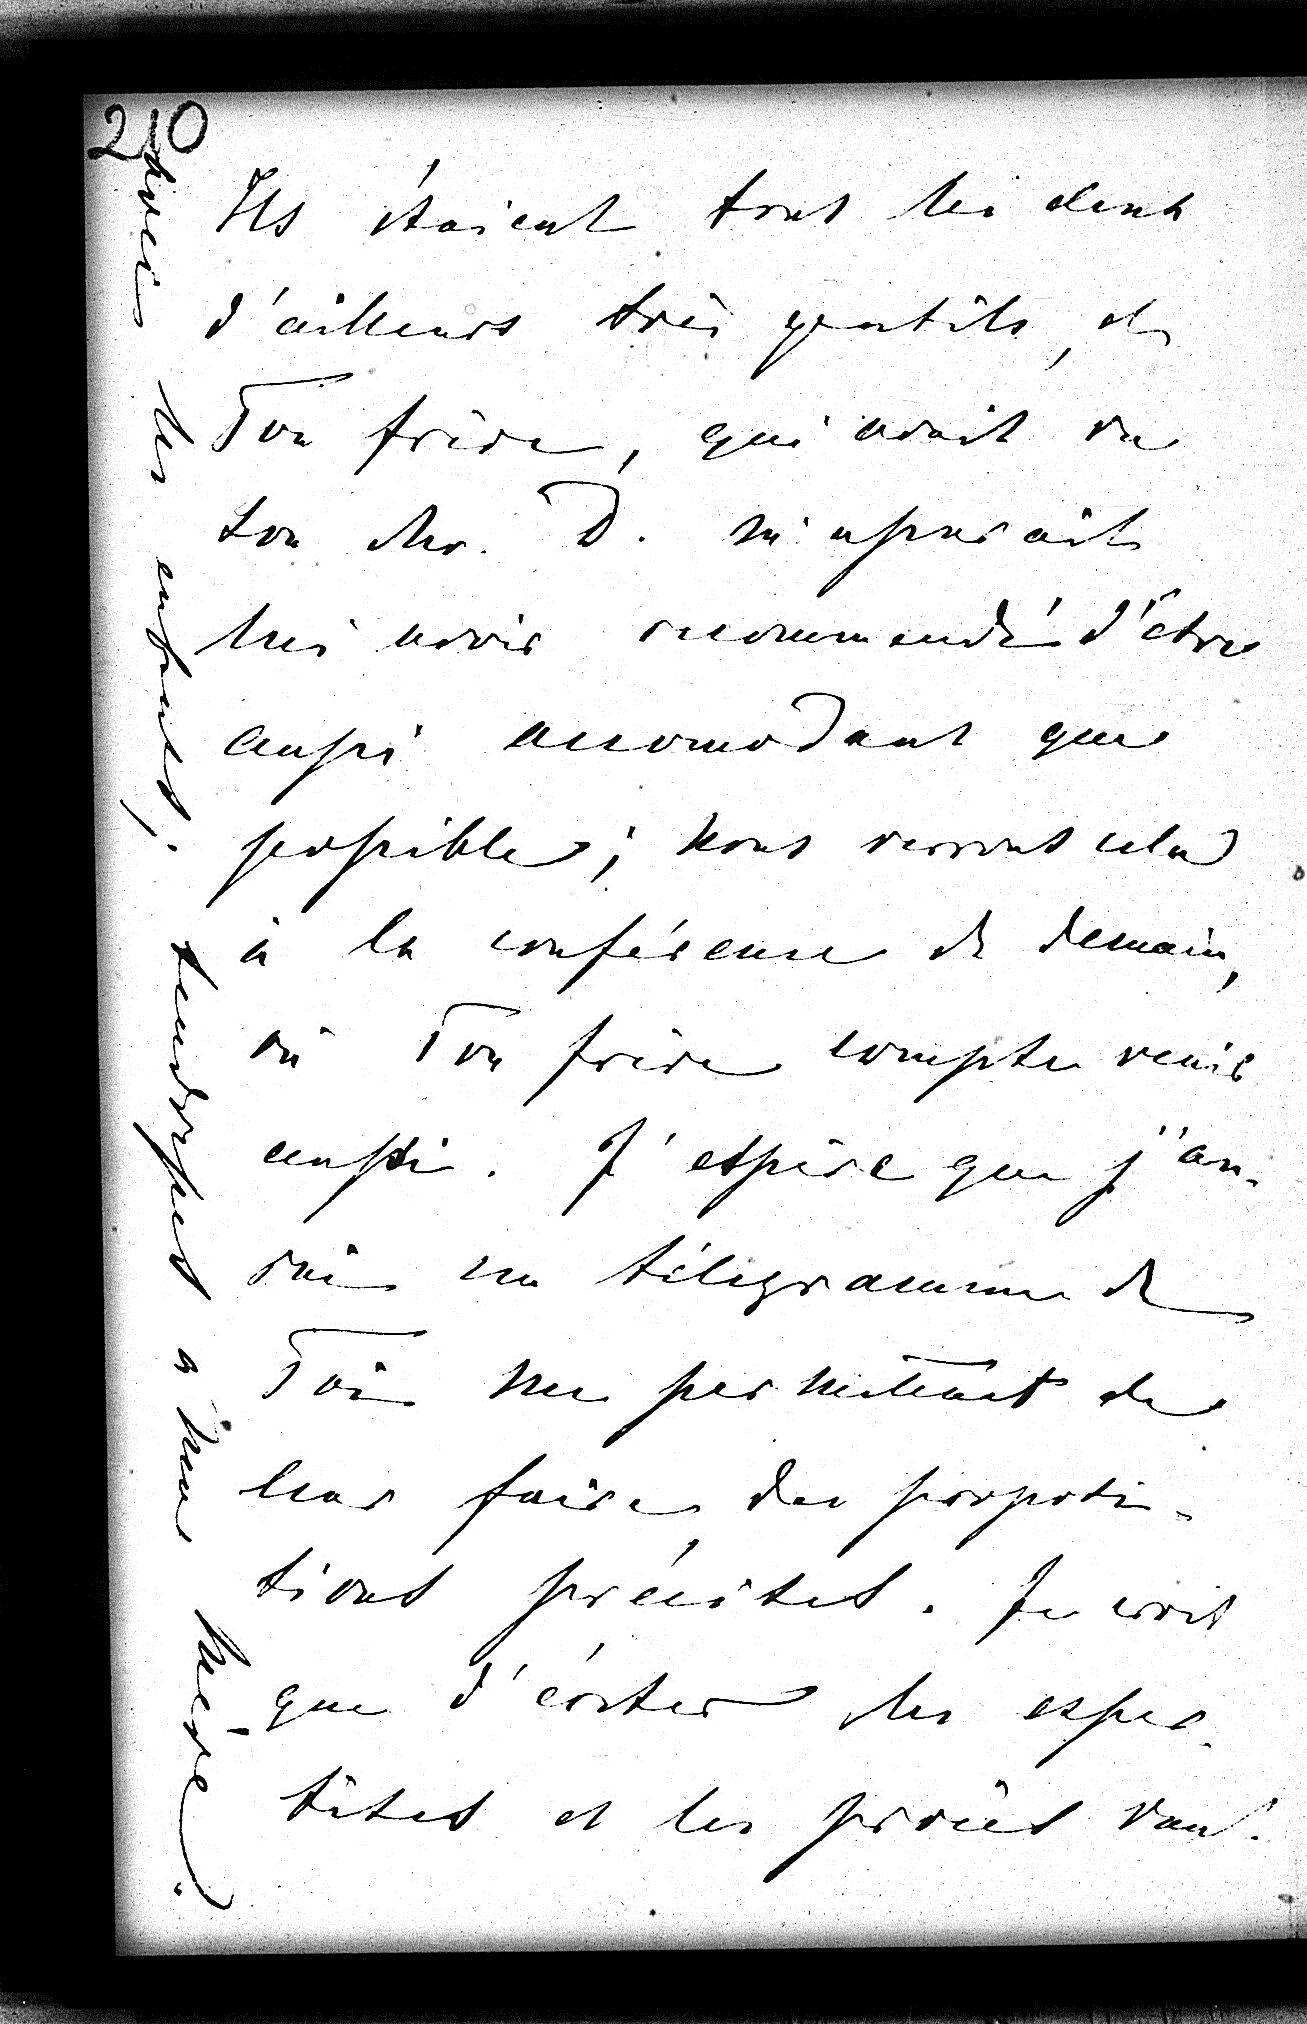 210
Ils étaient tous les deux
d'ailleurs très gentils, et
Ton frère, qui avait vu
son Mr. D. m'assurait
lui avoir recommandé d'être
aussi accomodant que
possible; nous verrons cela
à la conférence de demain,
où Ton frère compte venir
aussi. J'espère que j'au-
rai un télégramme de
Toi me permettant de
leur faire des proposi-
tions précises. Je crois
que d'éviter les exper-
tises et les procès vaut
avec les enfants; tendresses à ma mère.